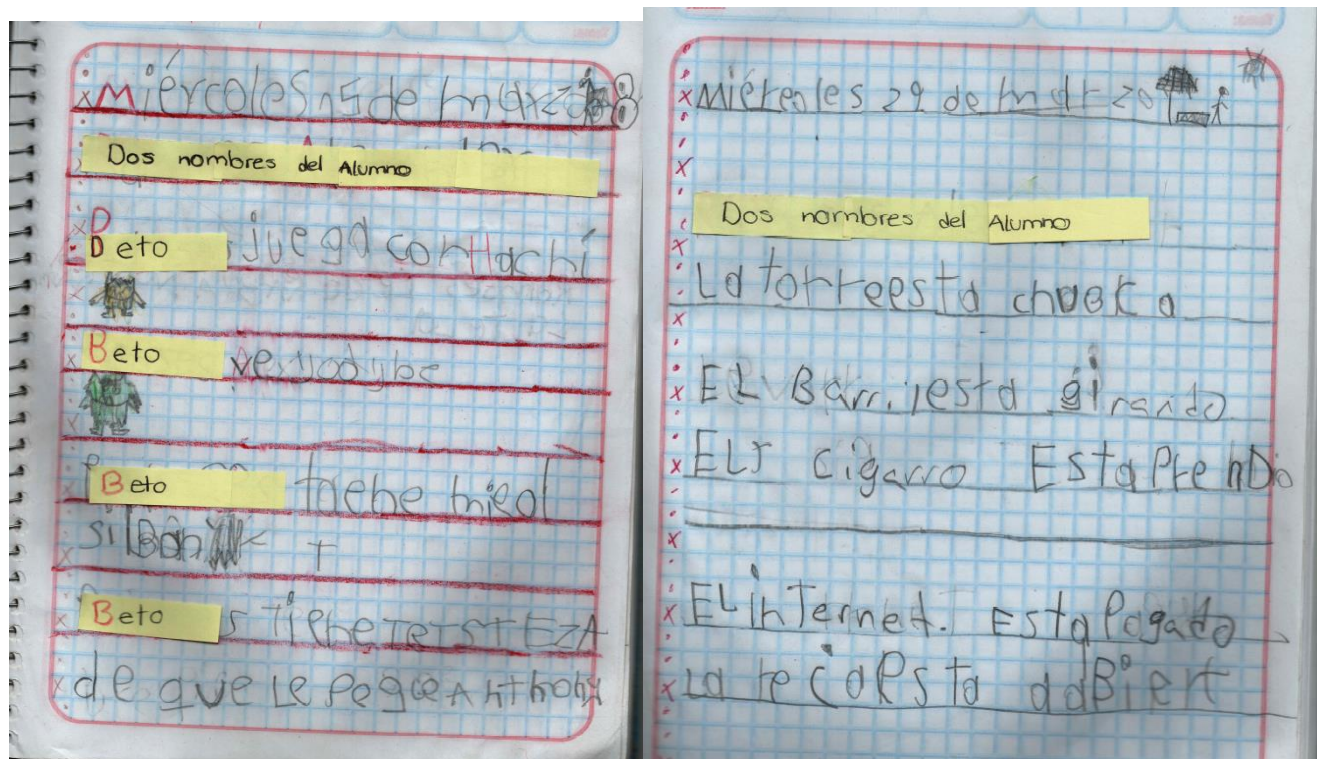 Miércoles 15 de marzo
Dos nombres del Alumno
Beto juega con Hachi
Beto
Beto tnebe mieol
silBan
Beto s tiene TeTstEzA
de que Le Pegue Anthony
Miércoles 29 de marzo
Dos nombres del Alumno
La torreesta chueka
EL Barriesta girando
EL cigarro EstaPrenDio
EL inTernet. EstaPogado
La recaesta daBiert